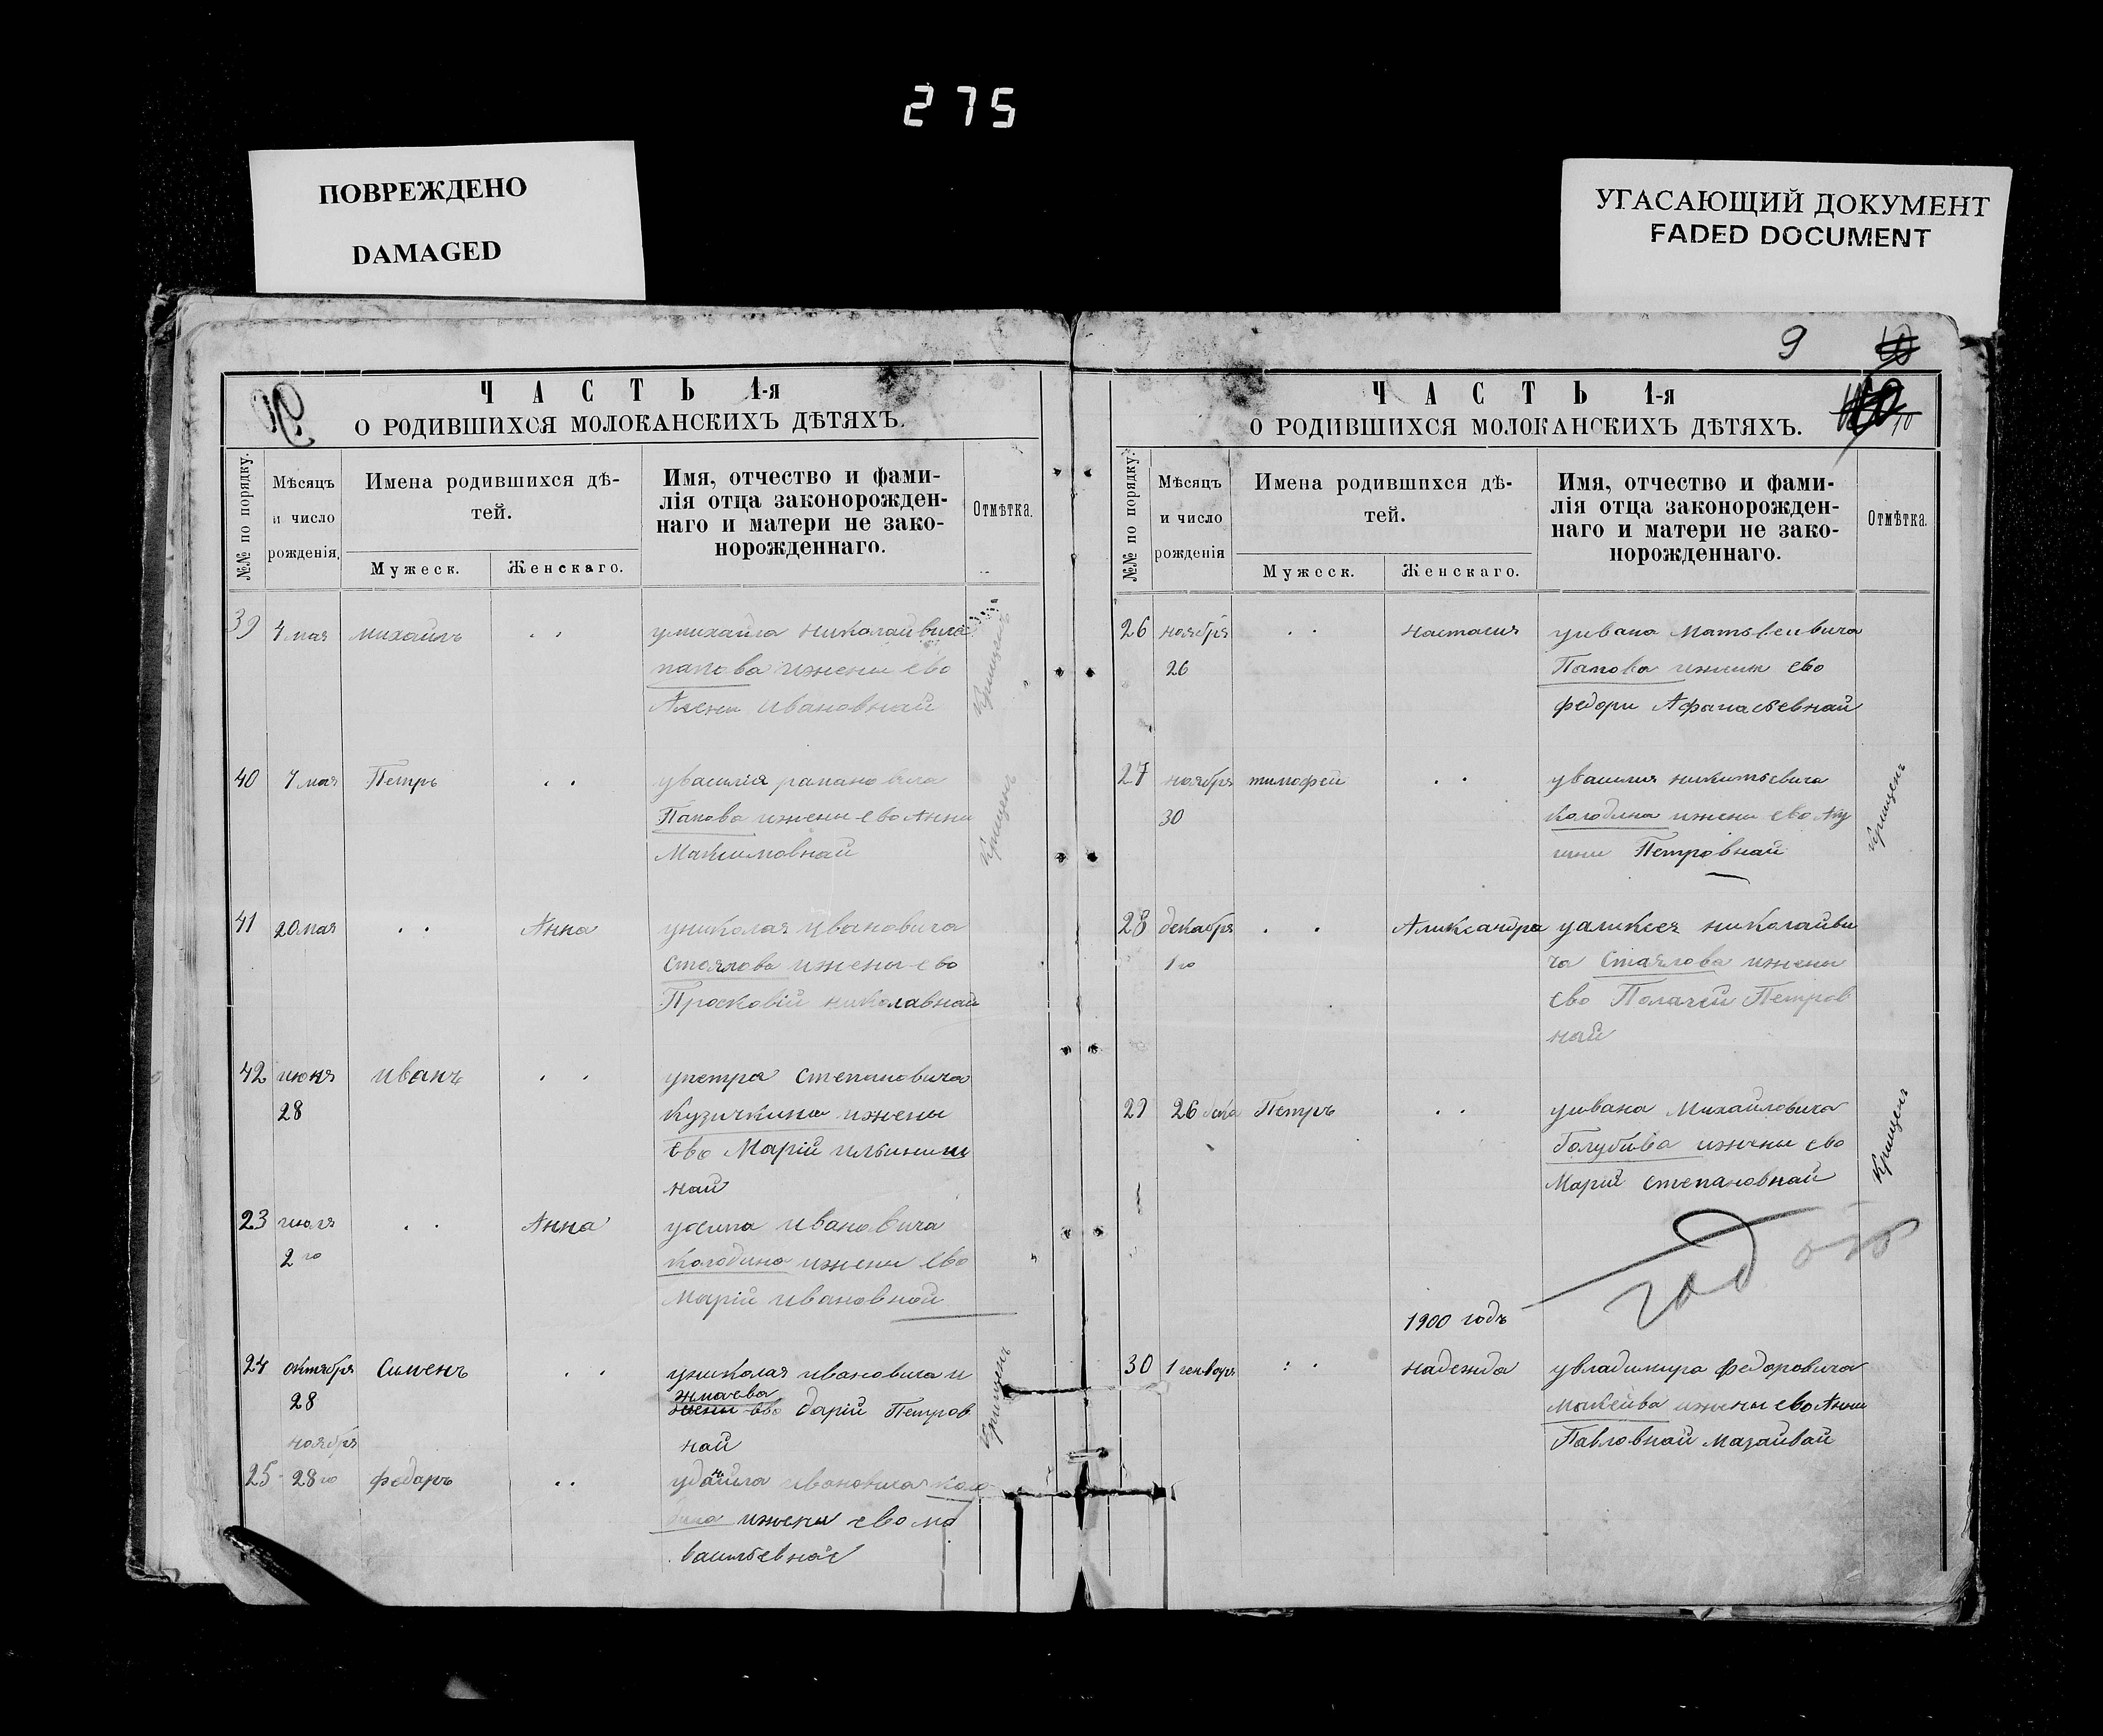 275
ПОВРЕЖДЕНО
DAMAGED
УГАСАЮЩИЙ ДОКУМЕНТ
FADED DOCUMENT
ЧАСТЬ 1-я
О РОДИВШИХСЯ МОЛОКАНСКИХЪ ДѢТЯХЪ.
№№ по порядку.
Мѣсяцъ
и число
рожденія.
Имена родившихся дѣ-
тей.
Мужеск.
Женскаго.
Имя, отчество и фами-
лія отца законорожден-
наго и матери не зако-
норожденнаго.
Отмѣтка.
39 4 мая михаилъ умихайла николаивича
папова ижени ево
Ивановнай
крещенъ
40 7 мая Петръ увасилія рамановича
Папова ижени ево Анни
Максимовнай
крещенъ
41 20 мая Анна униколая ивановича
Стоялова ижены ево
Просковій николавнай
42 июня иванъ упетра Степановича
28 Кузичкина ижены
ево Марій ильиниш
най
23 июля Анна уосипа ивановича
2го Колодина ижени ево
Марій ивановнай
24 октября Сименъ униколая ивановича и
28 жмаева
жени ево дарій Петров
най
крещенъ
ноября
25 28го федаръ ивановича
ижены ево
васильевнай
9
10
ЧАСТЬ 1-я
О РОДИВШИХСЯ МОЛОКАНСКИХЪ ДѢТЯХЪ.
№№ по порядку.
Мѣсяцъ
и число
рожденія
Имена родившихся дѣ-
тей.
Мужеск.
Женскаго.
Имя, отчество и фами-
лія отца законорожден-
наго и матери не зако-
норожденнаго.
Отмѣтка.
26 ноября настасия уивана Матвеивича
26 Папова ижени ево
федори Афанасьевнай
27 ноября тимофей увасилия никитьевича
30 Колодина ижени ево
Петровнай
крещенъ
28 декабря Аликсандра уаликсея николайви
1го ча Стаялова ижени
ево Полагей Петров
най
29 26 дека Петръ уивана Михайловича
Голубива ижены ево
Марий степановнай
крещенъ
год
1900 годъ
30 1 генворя надежда увладимира федоровича
Макеива ижены ево Анни
Павловнай Мазаивай